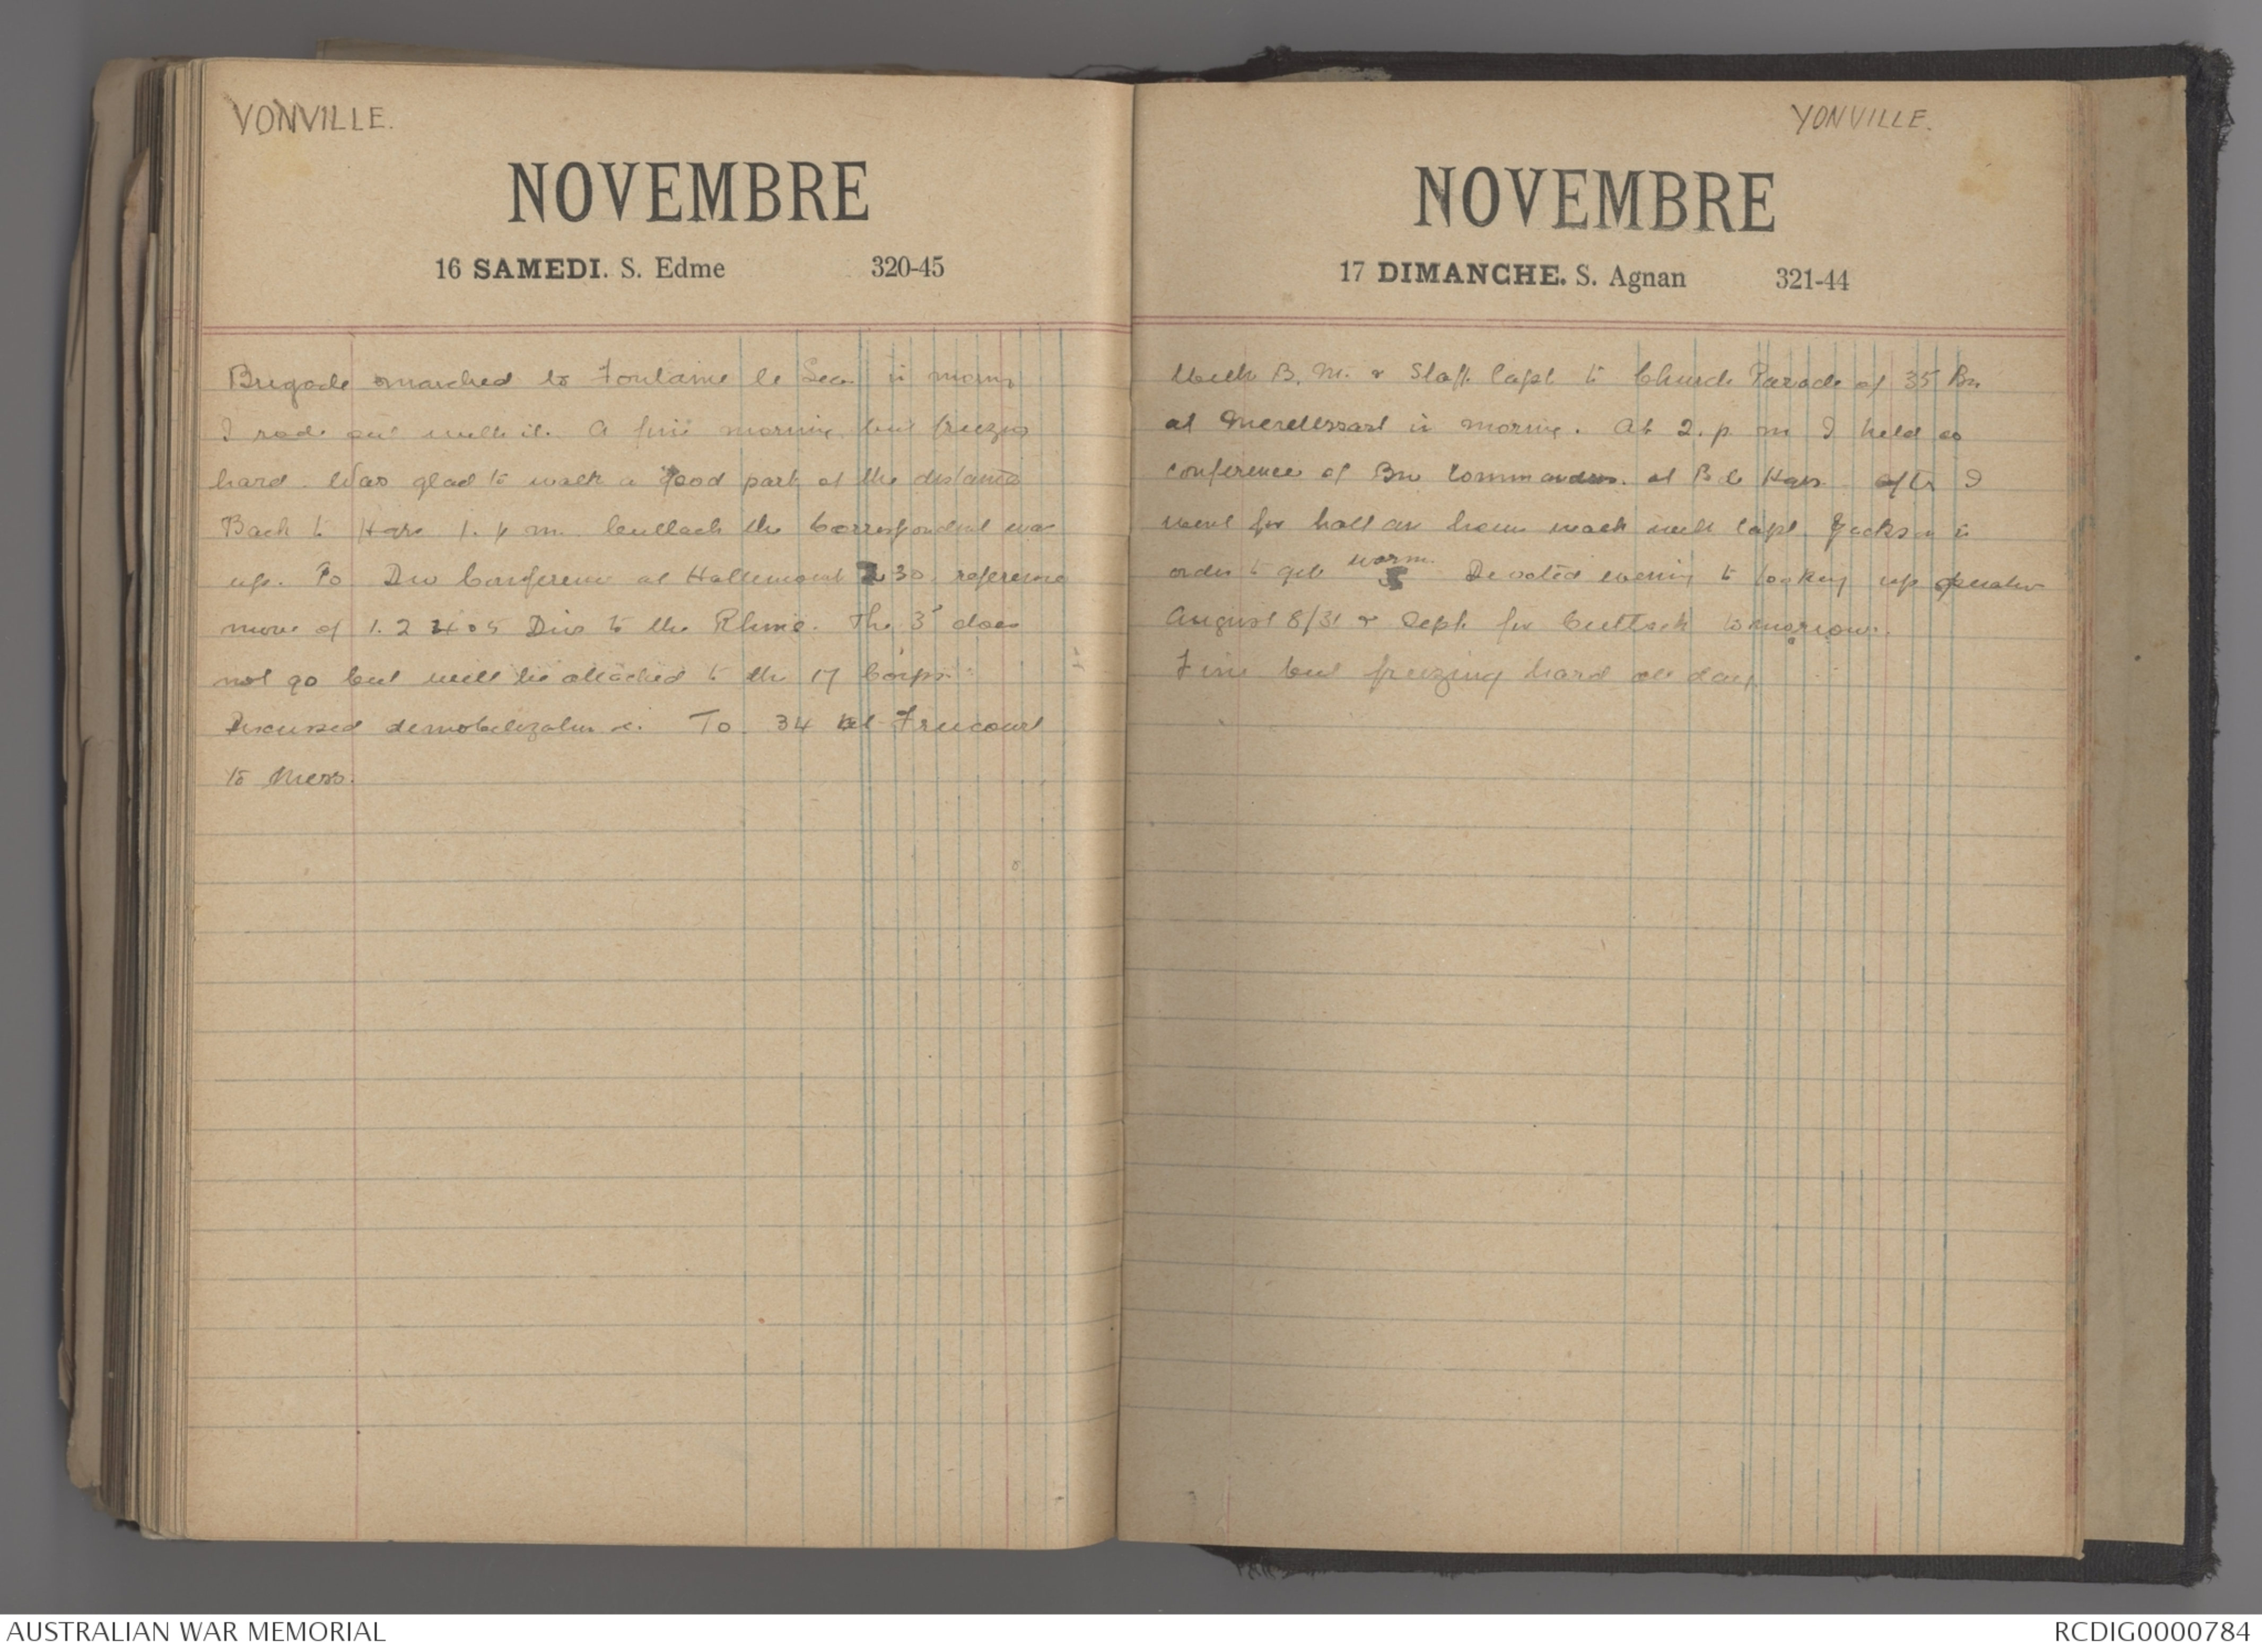 YONVILLE.
NOVEMBRE
16 SAMEDI. S. Edme 320-45
Brigade marched to Fontaine le Sec in morng
I rode out with it. A fine morning but freezing
hard. Was glad to walk a good part of the distance
Back to Hqrs 1. p m. Cutlack the Correspondent was
up. To Div Conference at Hallencourt 2 30 reference
move of 1. 2 4 & 5 Divs to the Rhine. The 3rd does
not go but will be attached to the 17 Corps.
Discussed demobilization &c. To 34 at Frucourt
to Mess.
YONVILLE.
NOVEMBRE
17 DIMANCHE. S. Agnan 321-44
With B. M. & Staff Capt to Church Parade of 35 Bn
at Merelessart in morning. At 2. p m I held a
conference of Bn Commanders. at Bde Hqrs after I
went for half an hours walk with Capt Jackson in
order to get warm. Devoted evening to looking up operation
August 8/31 & Sept for Cutlack tomorrow.
Fine but freezing hard all day
AUSTRALIAN WAR MEMORIAL
RCDIG0000784